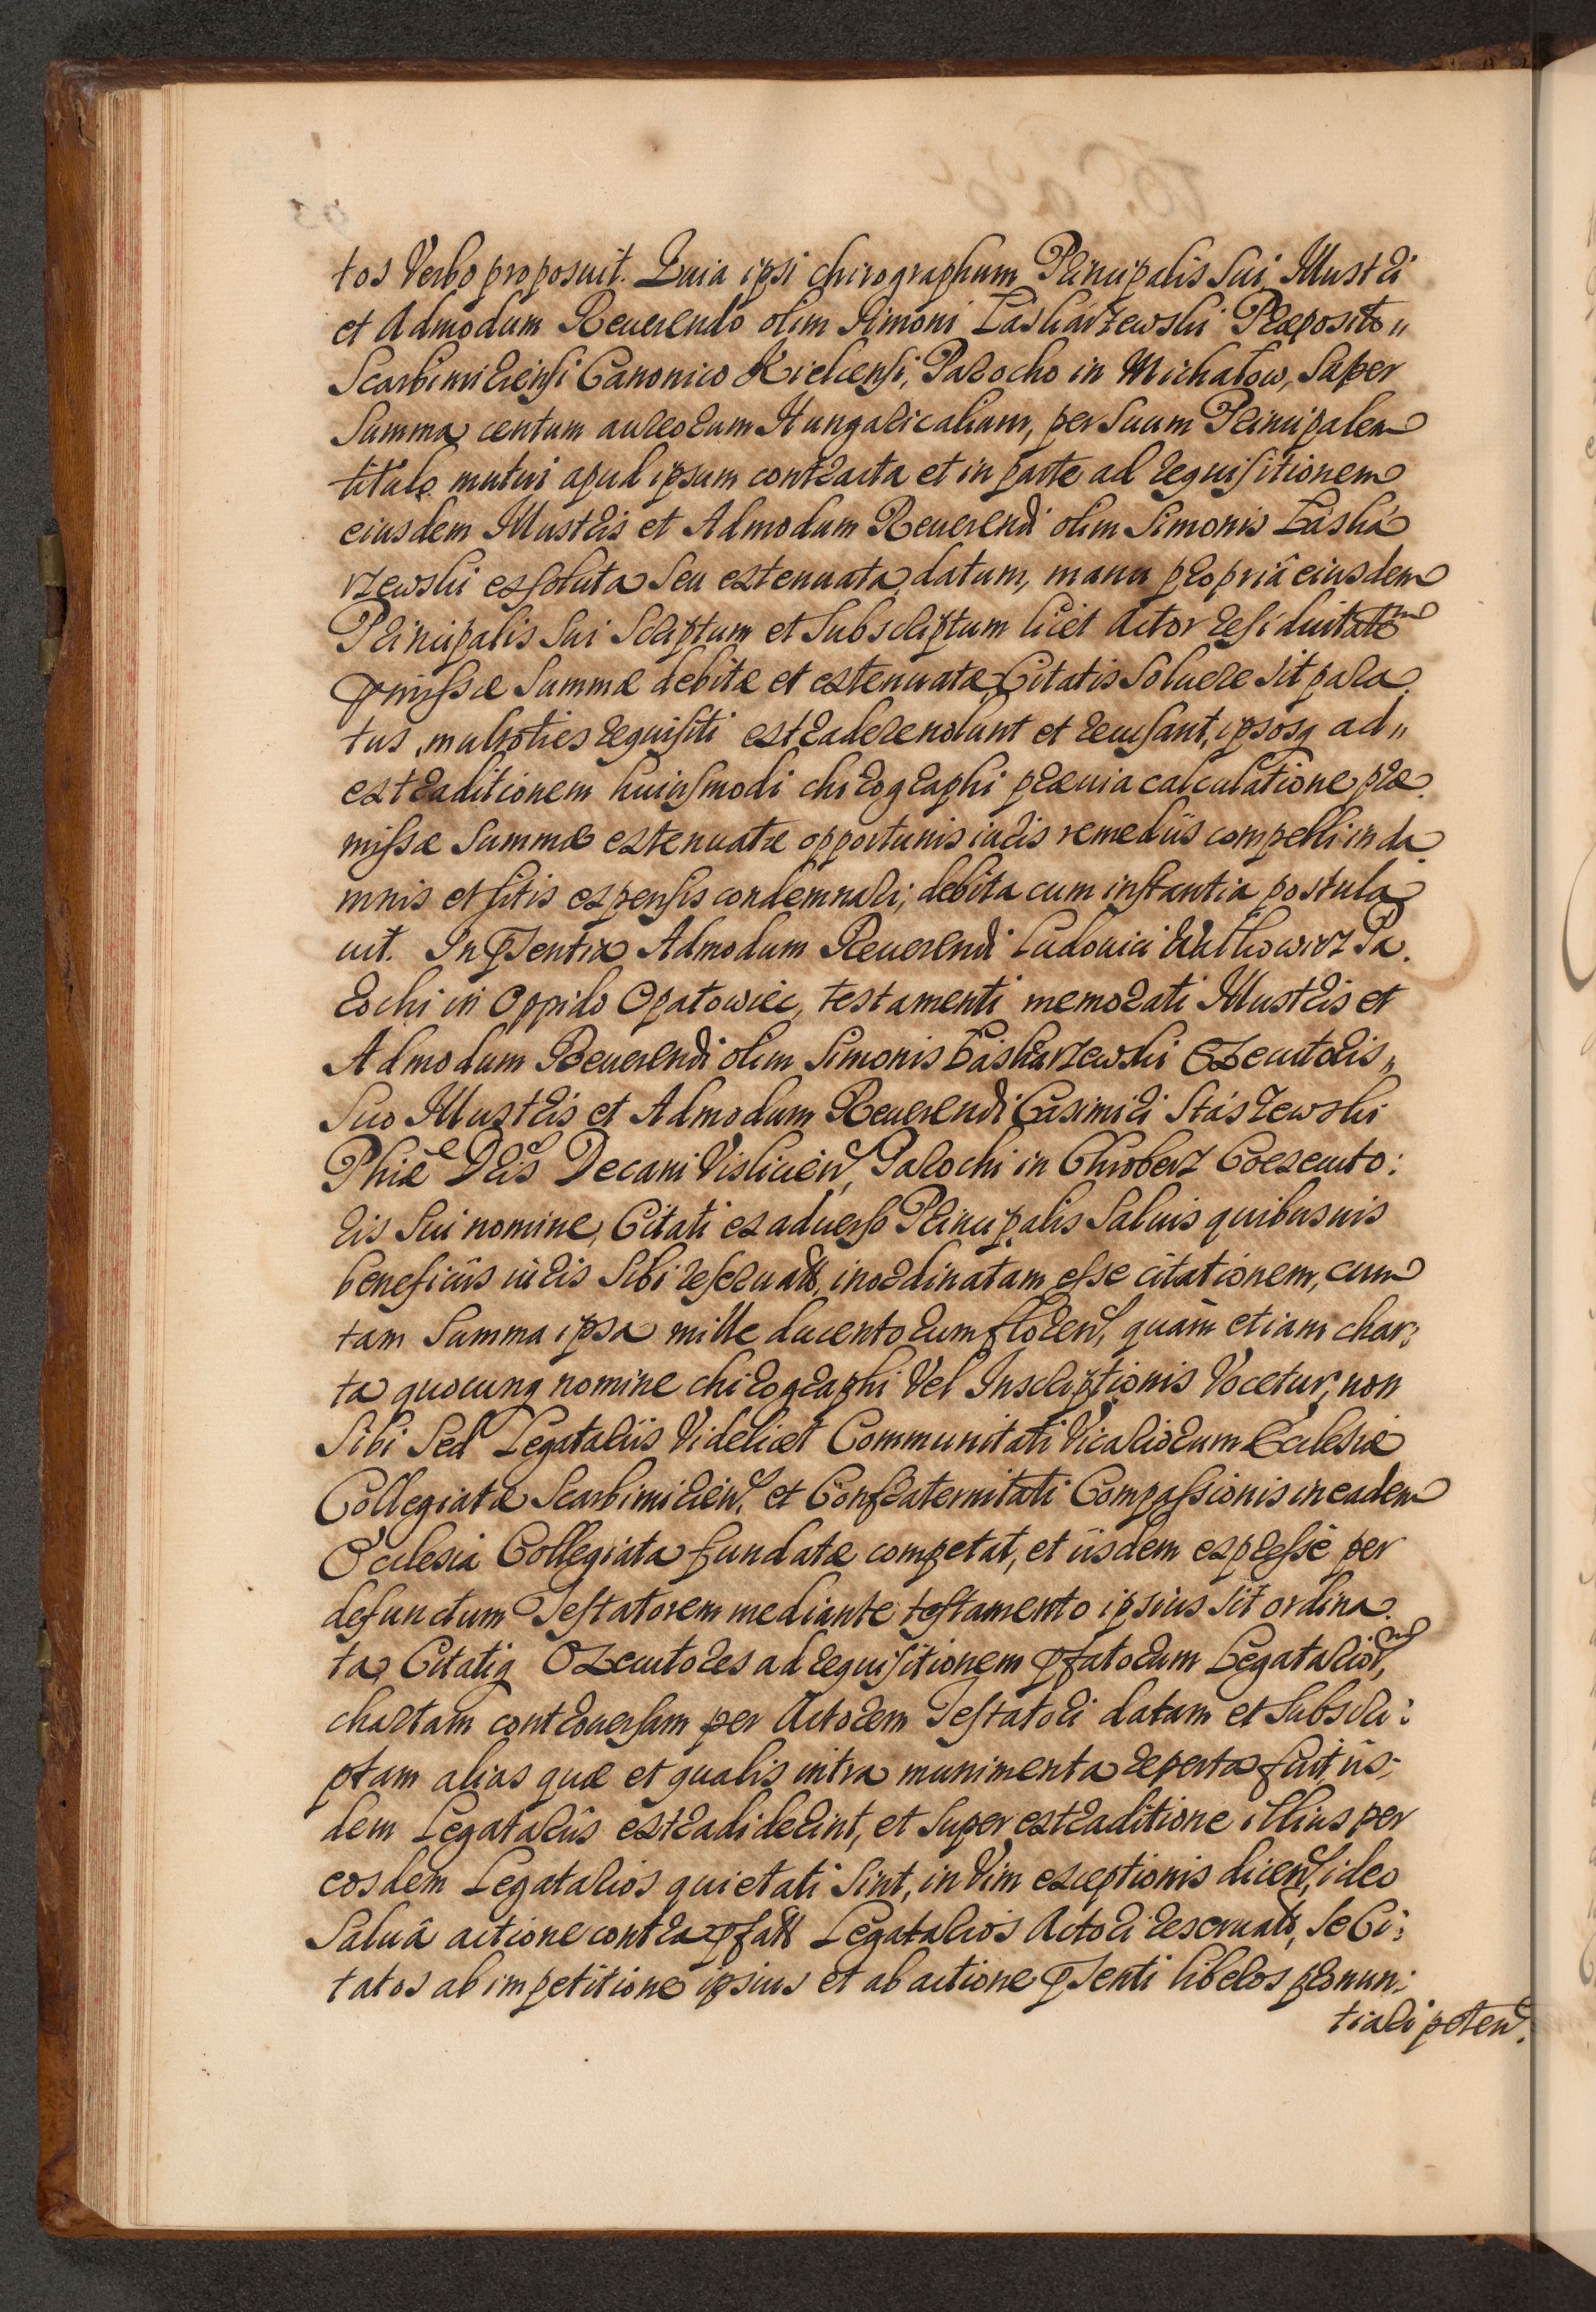 tos Verbo proposuit. Quia ipsi chirographum Principalis Sui, Illustri
et Admodum Reuerendo olim Simoni Łáskárzewski Præposito„
Scarbimiriensi Canonico Kielcensi, Parocho in Michałow, Super
Summa centum aureorum Hungaricalium, per Suum Principalem
titulo mutui apud ipsum contracta et in parte ad requisitionem
eiusdem Illustris et Admodum Reuerendi olim Simonis Łáská
rzewski exsoluta Seu extenuata, datum, manu propriâ eiusdem
Principalis Sui Scriptum et Subscriptum licet Actor residuitatem
pmissæ Summæ debitæ et extenuatæ, Citatis Soluere Sit para
tus, multoties requisiti extradere nolunt et recusant, ipsosq ad„
extraditionem huiusmodi chirographi præuia calculatione præ
missæ Summæ extenuatæ opportunis iuris remediis compelli in da
mnis et litis expensis condemnari, debita cum instantia postula
uit. In psentia Admodum Reuerendi Ludouici Witkowicz Pa
rochi in Oppido Opatowiec, testamenti memorati Illustris et
Admodum Reuerendi olim Simonis Łáskarzewski Executoris„
Suo Illustris et Admodum Reuerendi Casimiri Stászewski
Phiæ Dris Decani Vislicien, Parochi in Chroberz Coexecuto:
ris Sui nomine, Citati ex aduerso Principalis Saluis quibusuis
beneficiis iuris Sibi reseruatt, inordinatam esse citationem, cum
tam Summa ipsa mille ducentorum floren, quàm etiam char:
ta quocunq nomine chirographi Vel Inscriptionis Vocetur, non
Sibi Sed Legatariis Videlicet Communitati Vicariorum Ecclesiæ
Collegiatæ Scarbimirien, et Confraternitati Compassionis in eadem
Ecclesia Collegiata fundatæ competat, et iisdem expressè per
defunctum Testatorem mediante testamento ipsius Sit ordina
ta, Citatiq Executores ad requisitionem pfatorum Legatariorum,
chartam controuersam per Actorem Testatori datam et Subscri:
ptam alias quæ et qualis intra munimenta reperta fuit iis:
dem Legatariis extradiderint, et Super extraditione illius per
eosdem Legatarios quietati Sint, in Vim exceptionis dicen, ideo
Saluâ actione contra pfatt Legatarios Actori reseruatt, Se Ci:
tatos ab impetitione ipsius et ab actione psenti liberos pronun:
tiari peten.